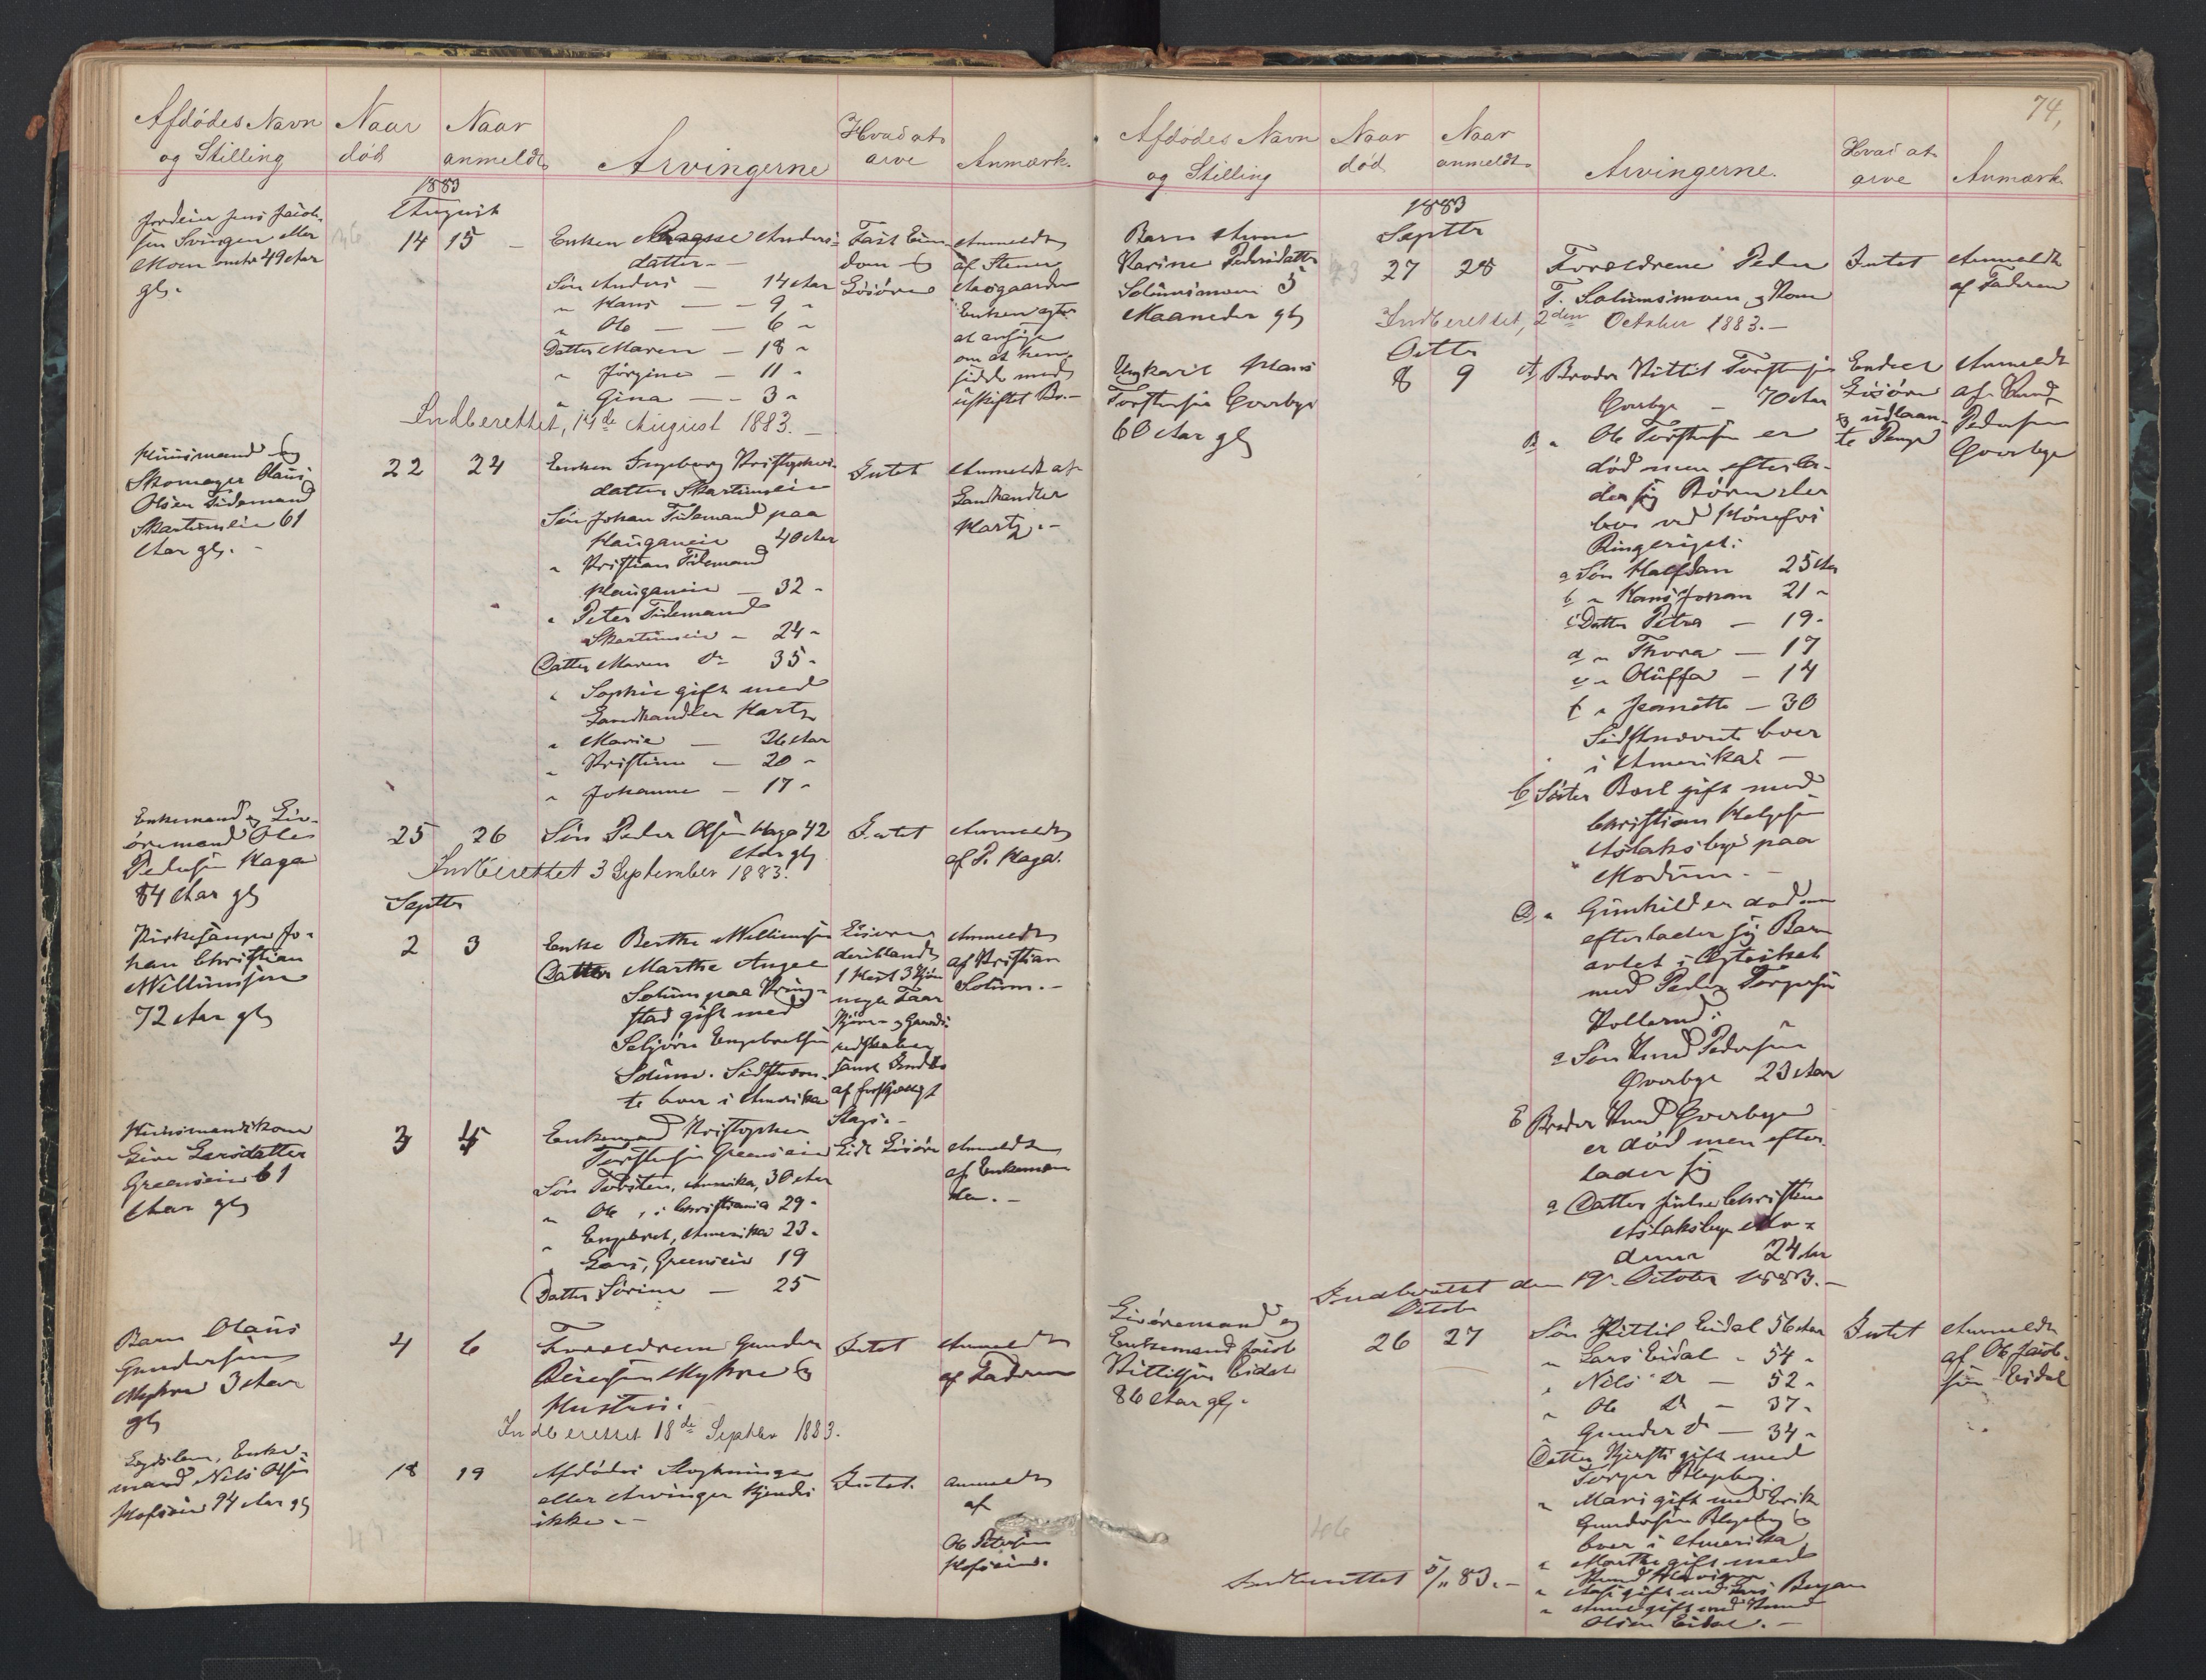 Afdödes Navn og Stilling
Naar död
Naar anmeldt
Arvingerne
Hvad at arve
Anmærk.
1883
August
Jordeier Jens Jacob-
sen Svingen eller
Moen omtr 49 Aar
gl.
14 15 -
Enken Anders-
datter. -
Søn Anders - 14 Aar
" Hans - - 9 "
" Ole - - 6 "
Datter Maren - 18 "
" Jörgine - 11 "
" Gina - - 3 "
Fast Eien-
dom og
Lösöre
Anmeldt
af Stener
Aasgaarden
Enken agter
at ansöge
om at hen-
sidde med
uskiftet Bo. -
Indberettet, 14de August 1883. -
Huusmand og
Skomager Olaus
Olsen Tidemand
61
Aar gl. -
22 24
Enken Ingeborg Kristophers-
datter
Søn Johan Tidemand paa
Hauganeie 40 Aar
" Kristian Tidemand
Hauganeie - 32 -
" Peter Tidemand
- 24 -
Datter Maren Do 35 -
" Sophie gift med
Landhandler Hartz
" Marie - 26 Aar
" Kristine - 20 -
" Johanne - 17 -
Intet
Anmeldt af
Landhandler
Hartz. -
Enkemand og Liv-
öremand Ole
Pedersen Haga
84 Aar gl
25 26
Søn Peder Olsen Haga 42
Aar gl
Intet
Anmeldt
af P. Haga.
Indberettet 3 September 1883.
Septbr
Kirkesanger Jo-
han Christian
Willumsen
72 Aar gl
2 3
Enke Berthe Willumsen
Datter Marthe
Solum paa Kring-
stad gift med
Engebretsen
Solum. Sidstnævn-
te boer i Amerika
Lösöre
deriblandt
1 Hest 3 Kjör
nogle Faar
Kjöre- og Gaards-
redskaber
samt Indbo
af forskjelligt
Slags. -
Anmeldt
af Kristian
Solum. -
Huusmandskone
Live Larsdatter
Greenseie 61
Aar gl
3 5
Enkemand Kristopher
Torstensen Greenseie
Søn Torsten, Amerika, 30 Aar
" Ole, i Christiania 29 -
" Engebret, Amerika 23 -
" Lars, Greenseie 19
Datter Sörine - 25
Lidt Lösöre
Anmeldt
af Enkeman
den. -
Barn Olaus
Gundersen
Myhre 3 Aar
gl
4 6
Forældrene Gunder
Reiersen Myhre og
Hustru. -
Intet
Anmeldt
af Faderen
Indberettet 18de Septbr 1883.
Lægdslem, Enke-
mand Nils Olsen
Hofseie 94 Aar gl
18 19
Afdödes Slægtninge
eller Arvinger kjendes
ikke. -
Intet.
Anmeldt
af
Ole Petersen
Hofseie.
74,
Afdödes Navn og Stilling
Naar död
Naar anmeldt
Arvingerne.
Hvad at arve
Anmærk.
1883
Septbr
Barn Anne
Karine Pedersdatter
Solumsmoen 5
Maaneder gl
27 28
Forældrene Peder
T. Solumsmoen og Kone
Intet
Anmeldt
af Faderen
Indberettet, 2den October 1883. -
Octbr
Ungkarl Hans
Torstensen Overbye
60 Aar gl
8 9
A Broder Kittil Torstensen
Overbye - 70 Aar
B " Ole Torstensen er
död men efterla-
der sig Börn der
boe ved Hönefos
Ringeriget:
a Søn Halfdan 25 Aar
b " Hans Johan 21 "
c Datter Petra - 19 -
d " Thora - 17
e " Oluffa - 14
f " Jeanette - 30
Sidstnævnte boer
i Amerika. -
C Søster Boel gift med
Christian Helgesen
Aslaksbye paa
Modum. -
D " Gunhild er död men
efterlader sig Barn
avlet i Ægteskab
med Peder Torgersen
Kollerud:
a Søn Knud Pedersen
Overbye 23 Aar
E Broder Knud Overbye
er död men efter-
lader sig
a Datter Christine
Aslaksbye Mo-
dum 24 Aar
Endeel
Lösöre
og udlaan-
te Penge
Anmeldt
af Knud
Pedersen
Overbye
Indberettet den 19. October 1883. -
Octobr
Livöremand og
Enkemand Jacob
Kittilsen Eidal
86 Aar gl. -
26 27
Søn Kittil Eidal 56 Aar
" Lars Eidal - 54 -
" Nils Do - 52 -
" Ole Do - 37 -
" Gunder Do - 34 -
Datter Kjersti gift med
Torger
" Mari gift med Erik
Gundersen og
boer i Amerika
" Marthe gift med
Knud
" gift med Lars
" Anne gift med Knud
Olsen Eidal. -
Intet
Anmeldt
af Ole Jacob-
sen Eidal
Indberettet 5/11 83. -